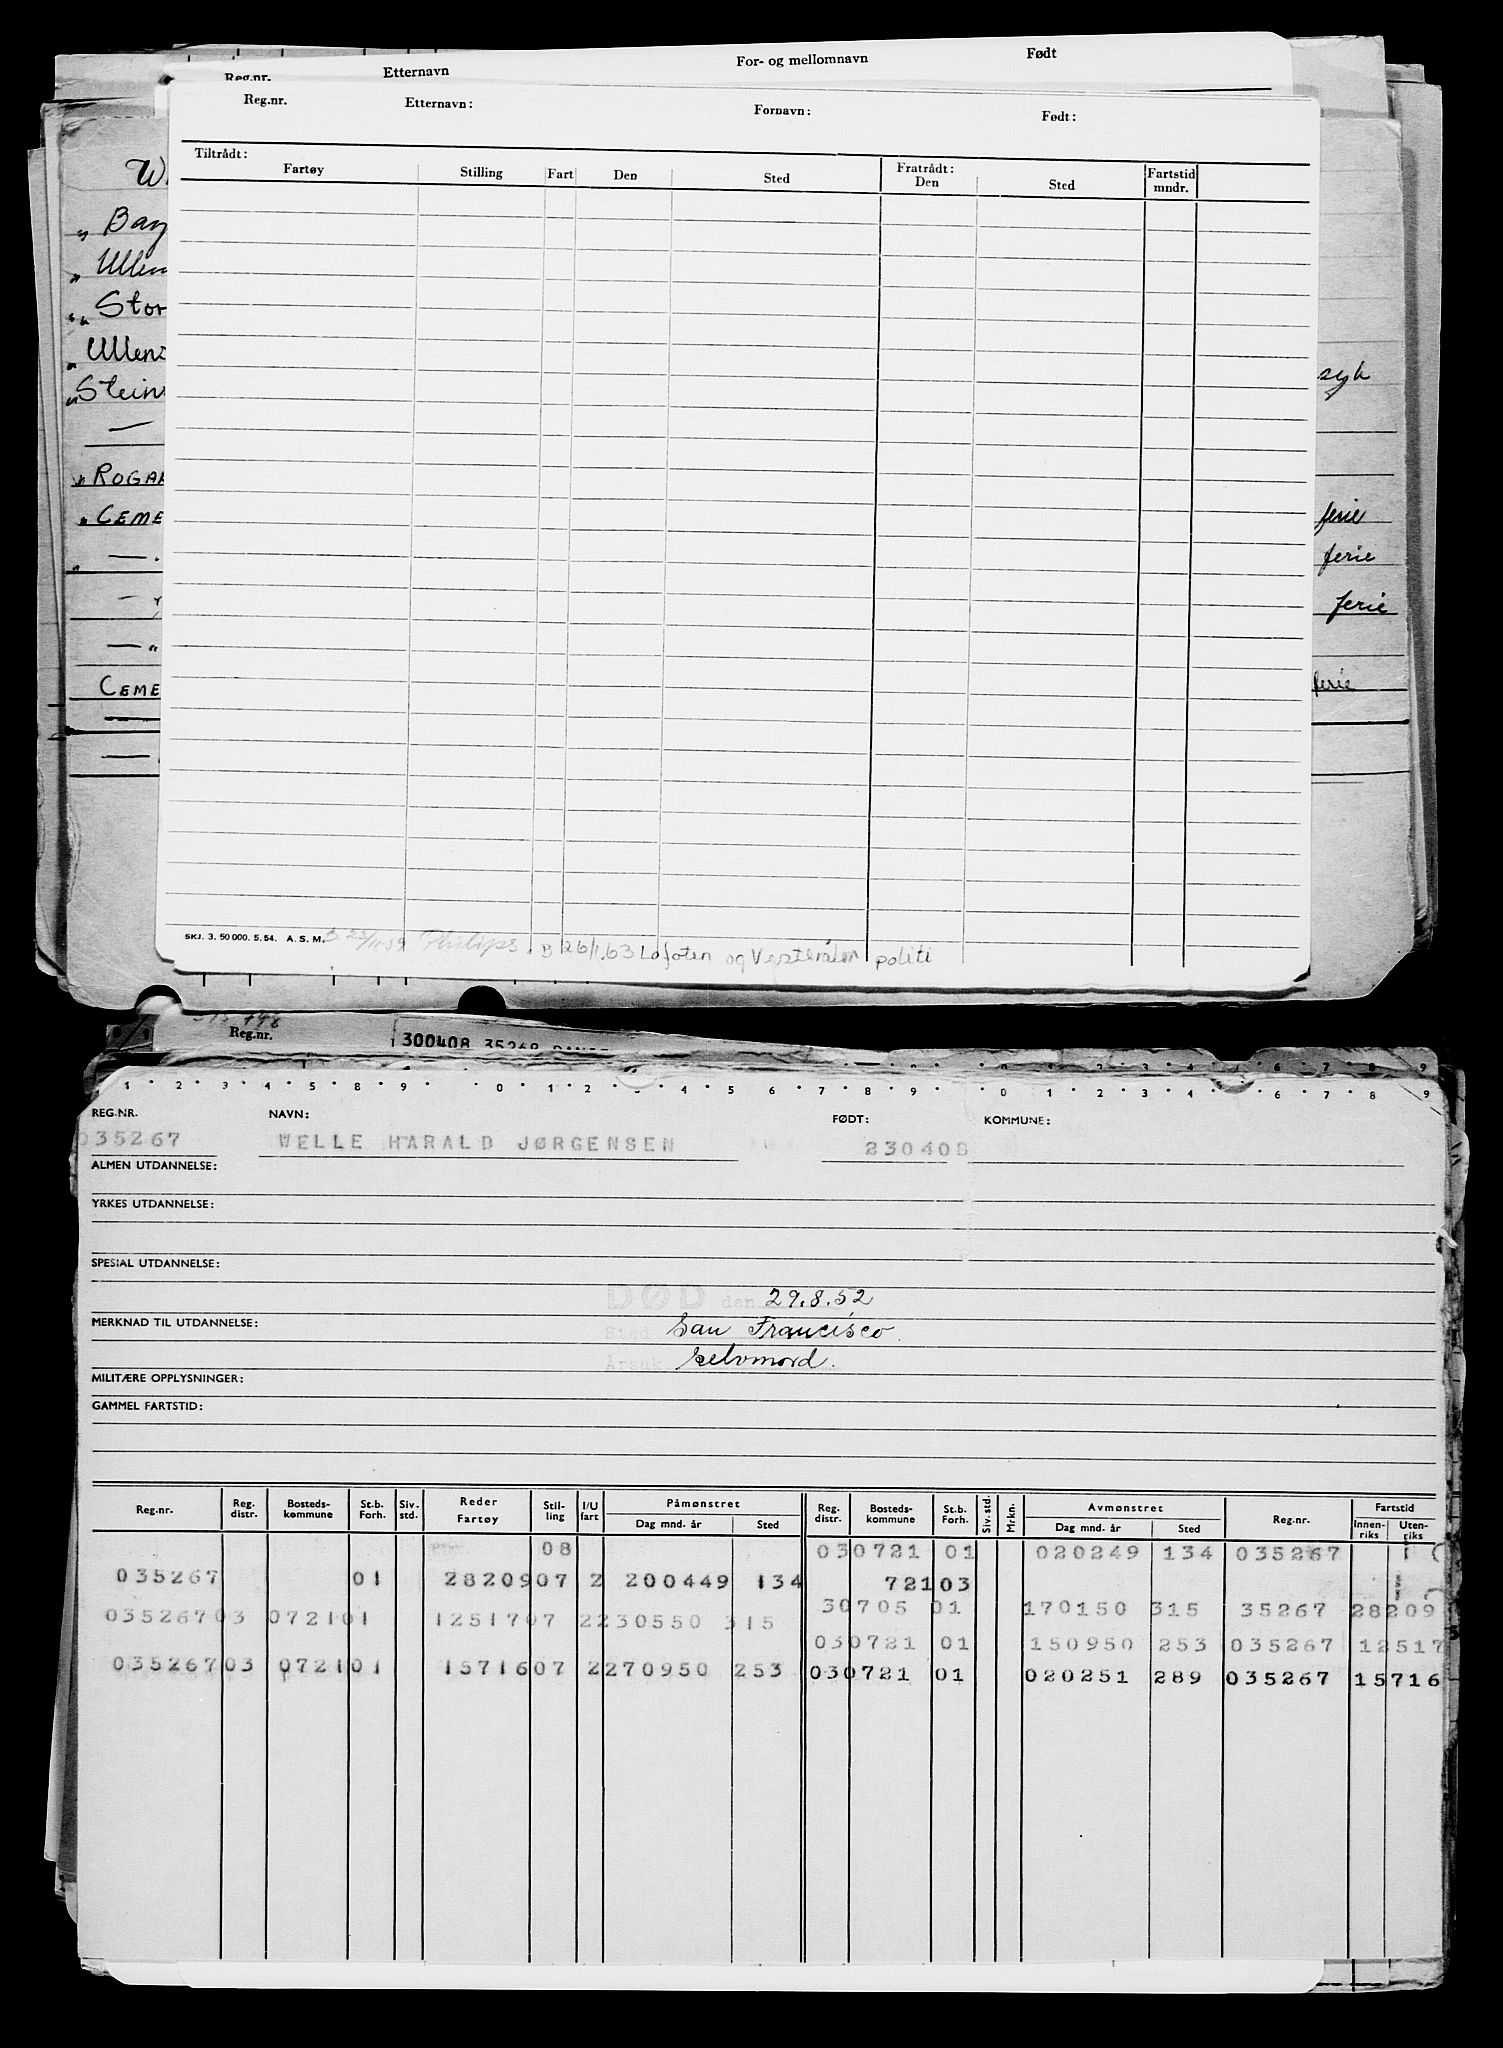 For- og mellomnavn Født
Reg.nr. Etternavn
Reg.nr. Etternavn: Fornavn: Født:
Tiltrådt: Fratrådt:
Fartøy Stilling Fart Den Sted Den Sted Fartstid mndr.
syk
ferie
ferie
ferie
ferie
SKJ. 3. 50 000. 5. 54. A. S. M. Philips B 26/1.63 Lofoten og Vesterålen politi
Reg.nr. 300408 35268
1 · 2 · 3 · 4 · 5 · 8 · 9 · 0 · 1 · 2 · 4 · 5 · 6 · 7 · 8 · 9 · 0 · 1 · 2 · 3 · 4 · 5 · 6 · 7 · 8 · 9
REG.NR. NAVN: FØDT: KOMMUNE:
035267 WELLE HARALD JØRGENSEN 230408
ALMEN UTDANNELSE:
YRKES UTDANNELSE:
SPESIAL UTDANNELSE:
DØD den 29.8.52
MERKNAD TIL UTDANNELSE:
Sted San Francisco
Årsak selvmord.
MILITÆRE OPPLYSNINGER:
GAMMEL FARTSTID:
Reg.nr. Reg. distr. Bosteds- kommune St.b. Forh. Siv. std. Reder Fartøy Stil- ling I/U fart Påmønstret Dag mnd. år Sted Reg. distr. Bosteds- kommune St.b. Forh. Siv. std. Mrkn. Avmønstret Dag mnd. år Sted Reg.nr. Fartstid Innen- riks Uten- riks
08 030721 01 020249 134 035267
035267 01 2820907 2 200449 134 72103
30705 01 170150 315 35267 28209
03526703 072101 1251707 2230550 315
030721 01 150950 253 035267 12517
03526703 072101 1571607 2270950 253 030721 01 020251 289 035267 15716